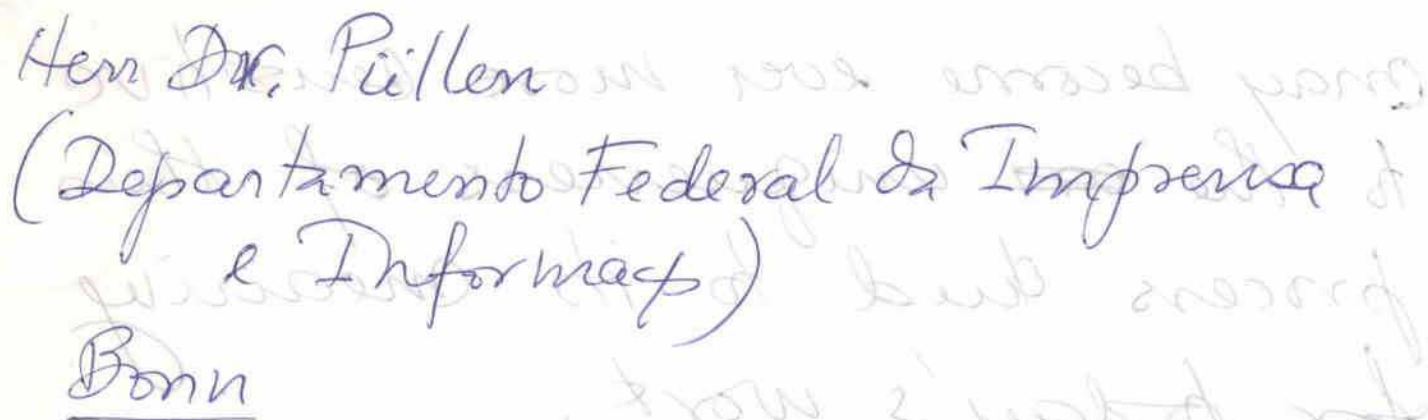 Herr Dr. Püllen
(Departamento Federal da Imprensa
e Informaç)
Bonn